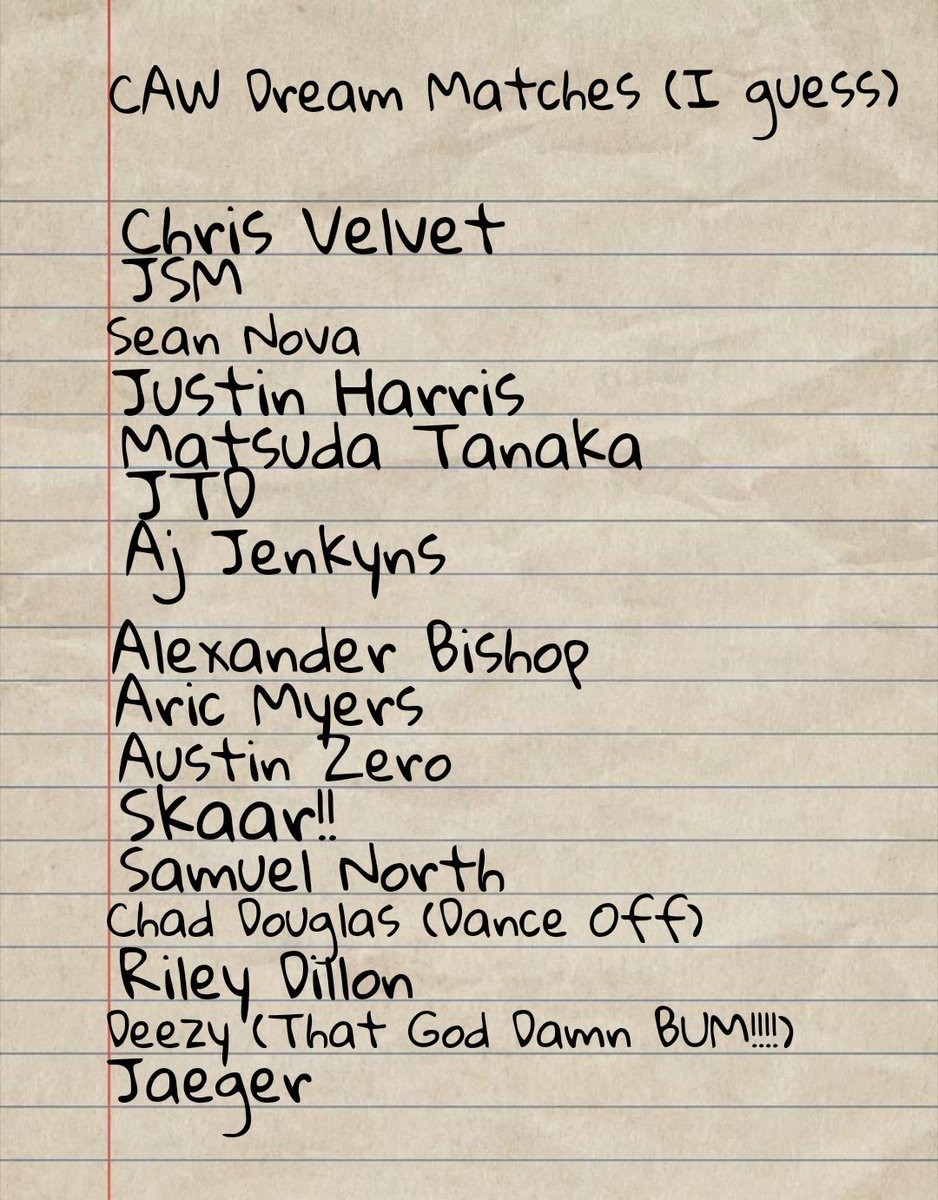 CAW Dream Matches (I guess)
Chris Velvet
JSM
Sean Nova
Justin Harris
Matsuda Tanaka
JTD
Aj Jenkyns
Alexander Bishop
Aric Myers
Austin Zero
Skaar!!
Samuel North
Chad Douglas (Dance Off)
Riley Dillon
Deezy (That God Damn BUM!!!!)
Jaeger